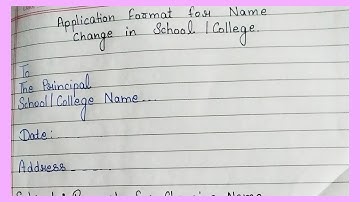 Application Format for Name
Change in School / College.
To
The Principal
School / College Name...
Date:
Address......